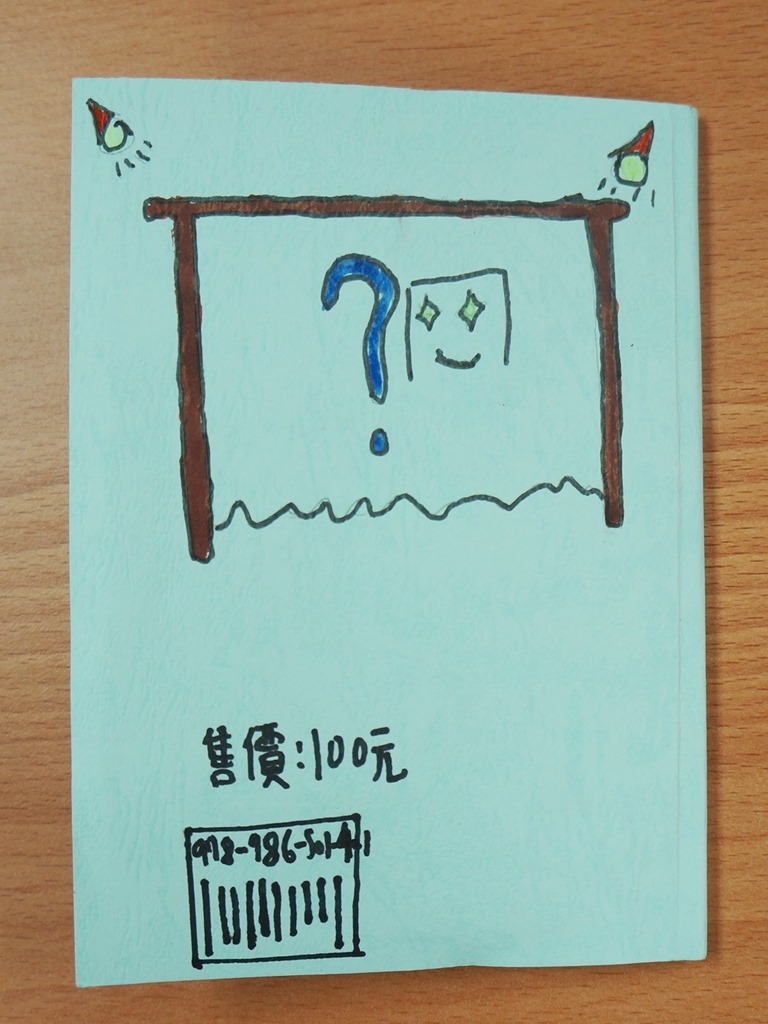 ?
售價:100元
978-986-501-4-1